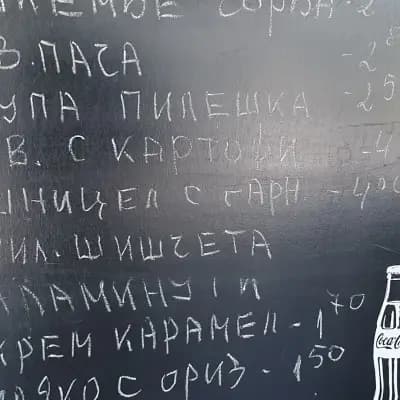 ШКЕМБЕ ЧОРБА - 2
В. ПАЧА - 2
УПА ПИЛЕШКА - 2 5
В. С КАРТОФИ - 4
ШНИЦЕЛ С ГАРН. - 4 00
ИЛ. ШИШЧЕТА
КАЛАМИНУТИ
КРЕМ КАРАМЕЛ - 1 70
МЛЯКО С ОРИЗ - 1 50
Coca-Co